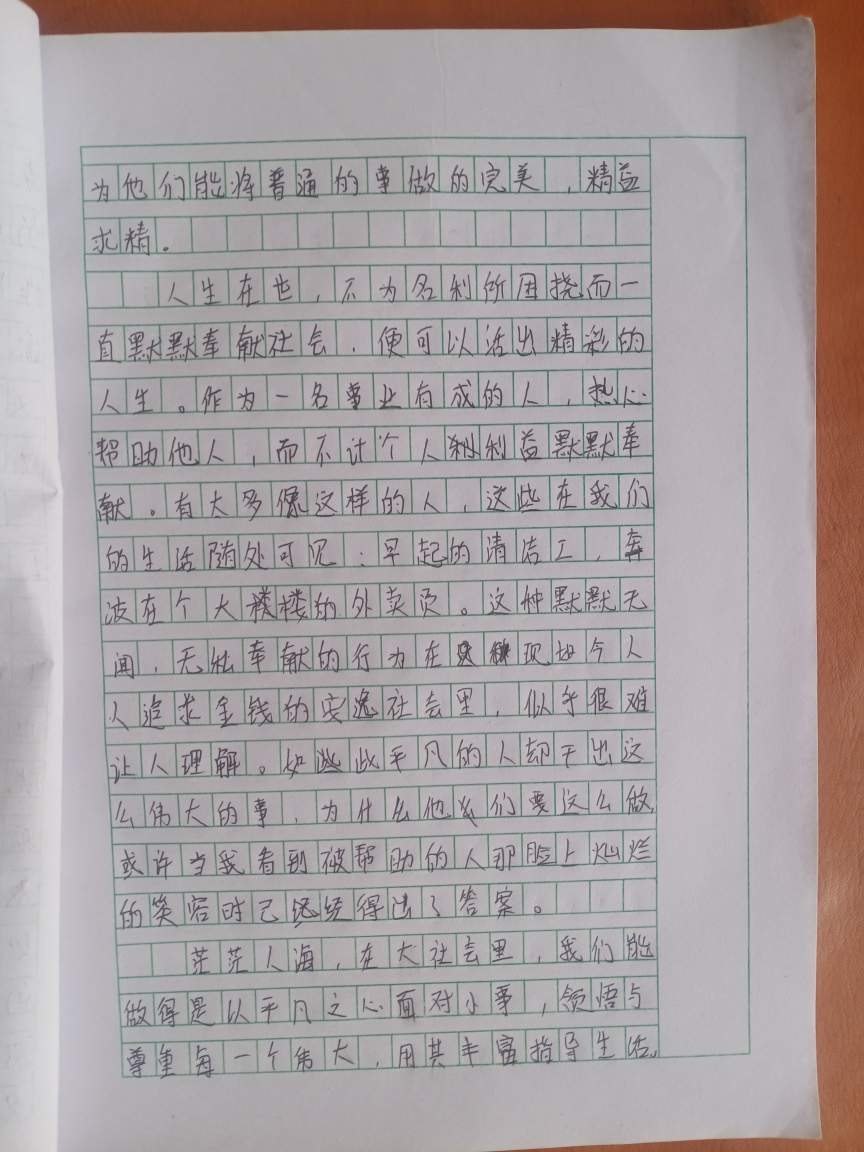 为他们能将普通的事做的完美，精益
求精。
人生在世，不为名利所困挠而一
直默默奉献社会，便可以活出精彩的
人生。作为一名事业有成的人，热心
帮助他人，而不计个人利益默默奉
献。有太多像这样的人，这些在我们
的生活随处可见：早起的清洁工，奔
波在个大楼的外卖员。这种默默无
闻，无私奉献的行为在现如今人
人追求金钱的安逸社会里，似乎很难
让人理解。如此平凡的人却干出这
么伟大的事，为什么他们要这么做，
或许当我看到被帮助的人那脸上灿烂
的笑容时已经得出了答案。
茫茫人海，在大社会里，我们能
做得是以平凡之心面对小事，领悟与
尊重每一个伟大，用其丰富指导生活。